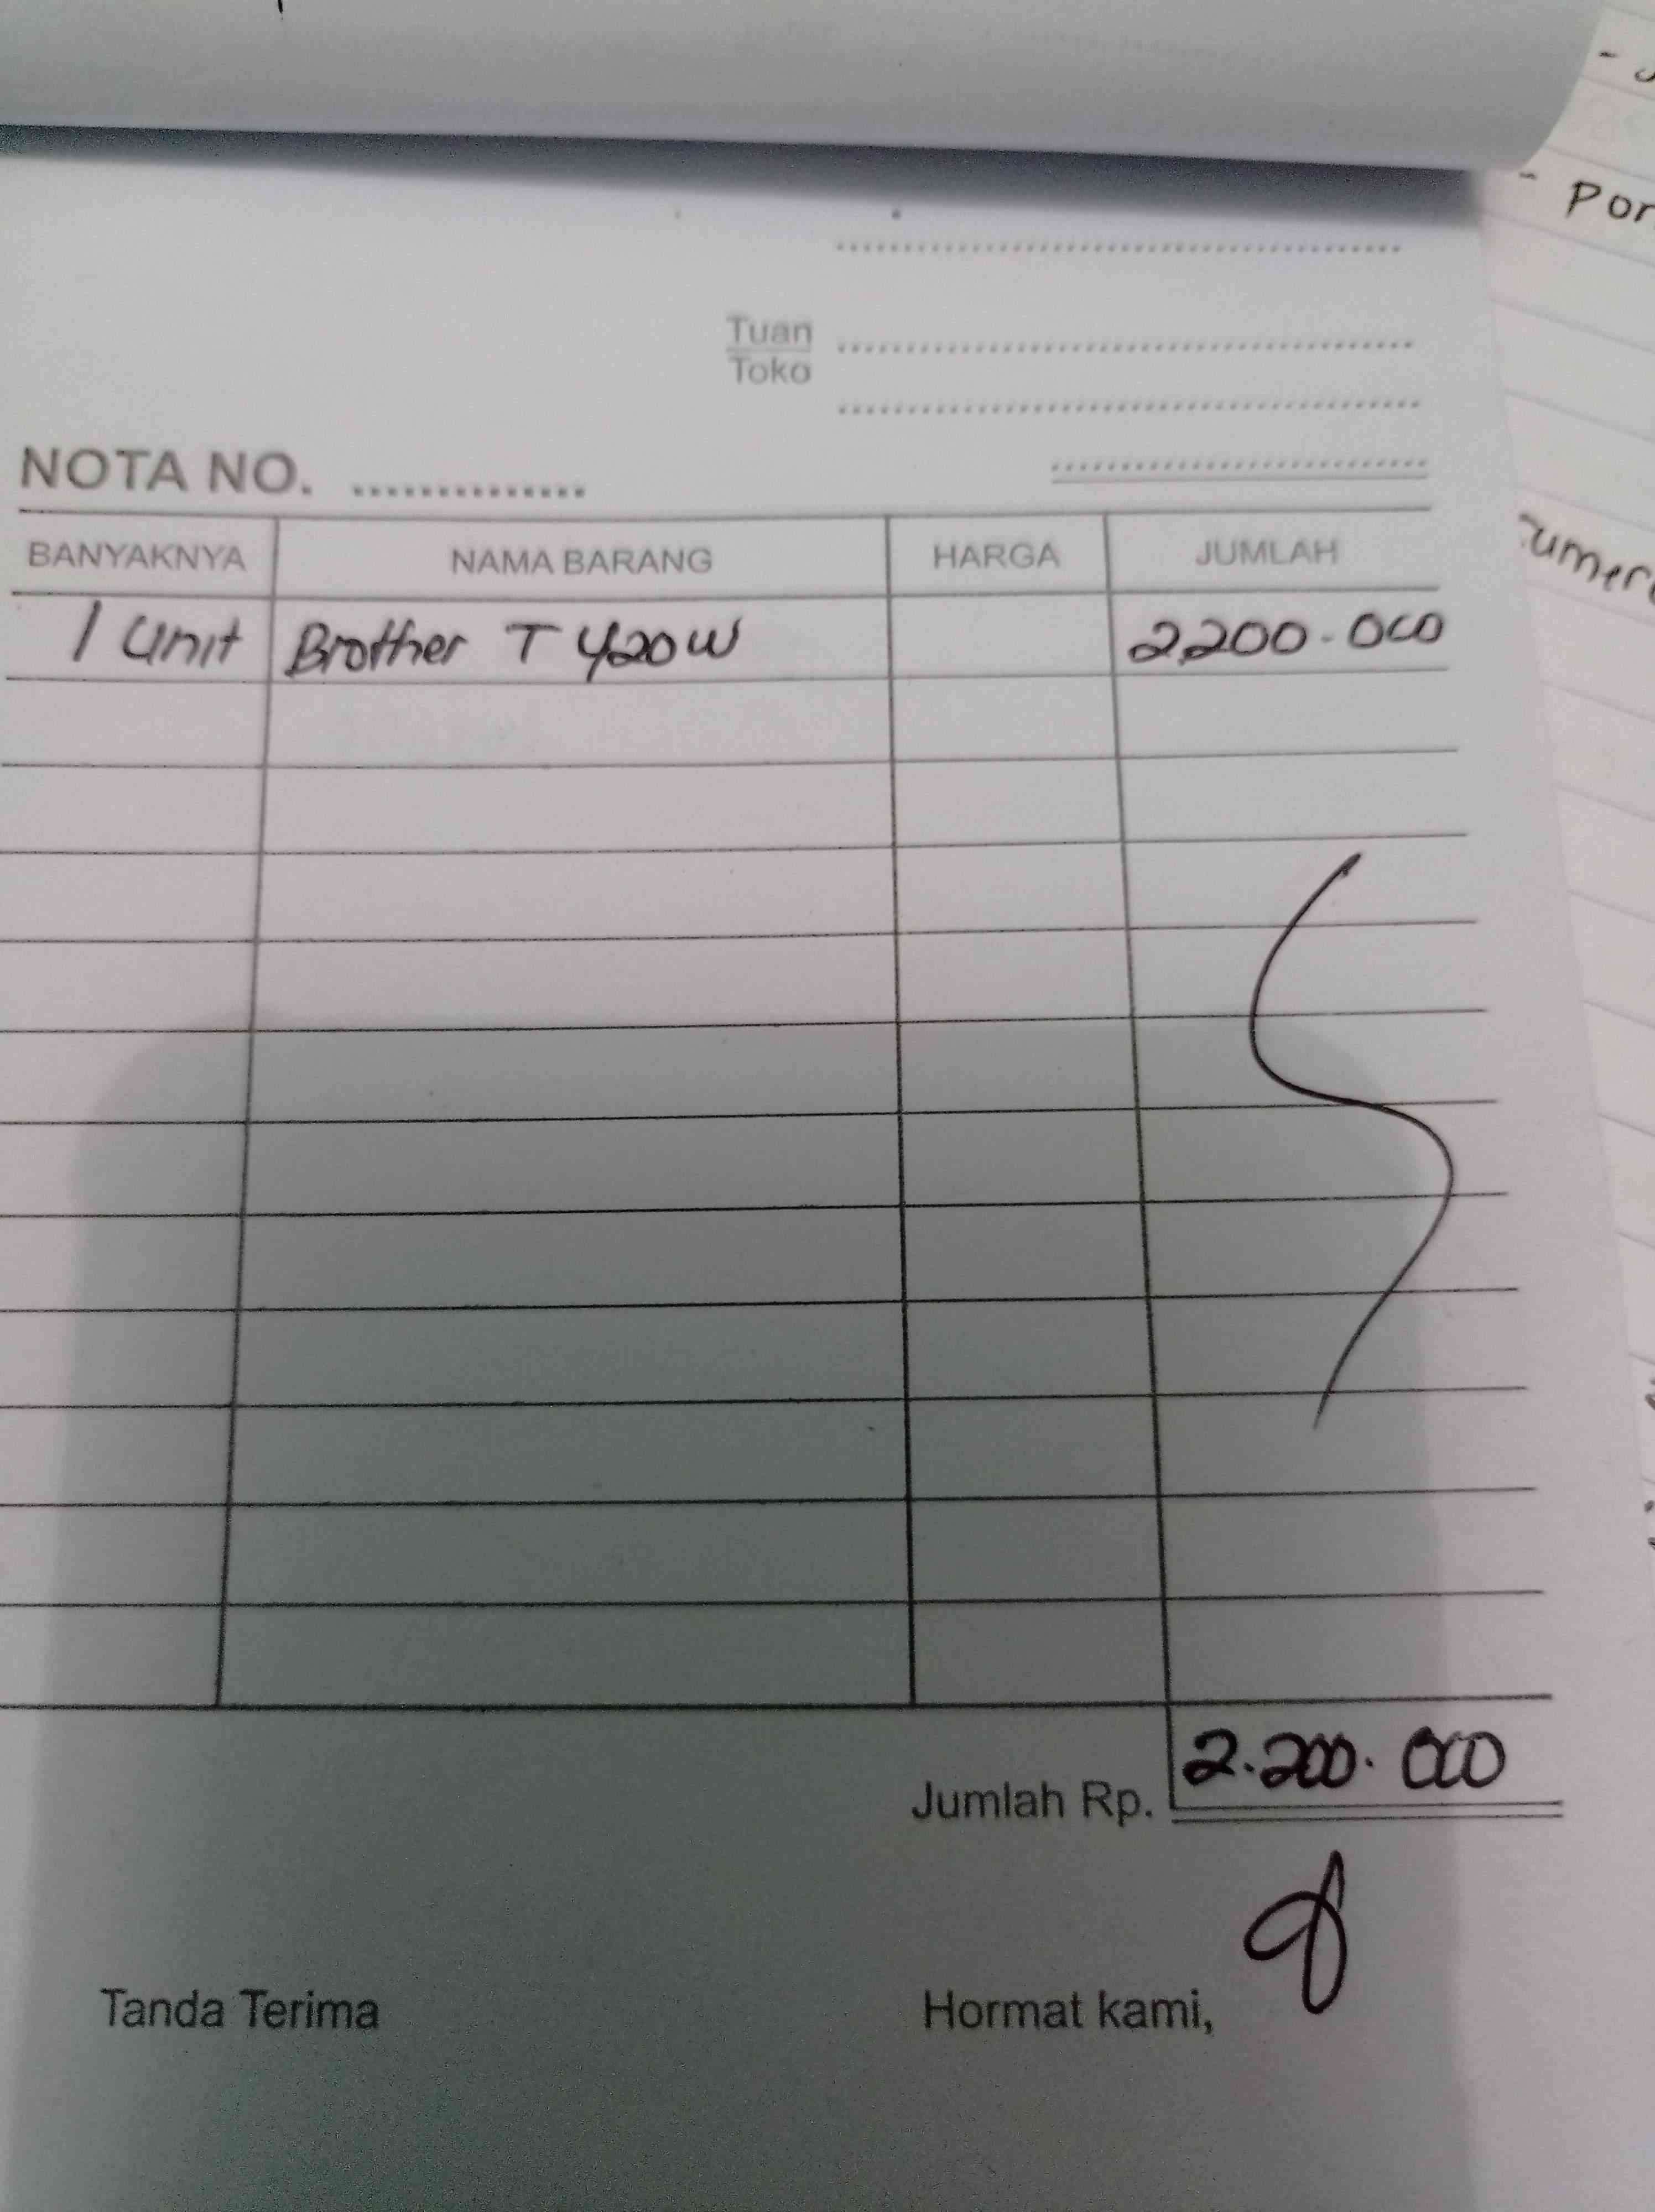 Tuan
Toko
NOTA NO. ...............
BANYAKNYA NAMA BARANG HARGA JUMLAH
1 Unit Brother T 420W 2.200.000
Jumlah Rp. 2.200.000
Tanda Terima Hormat kami,
- Por